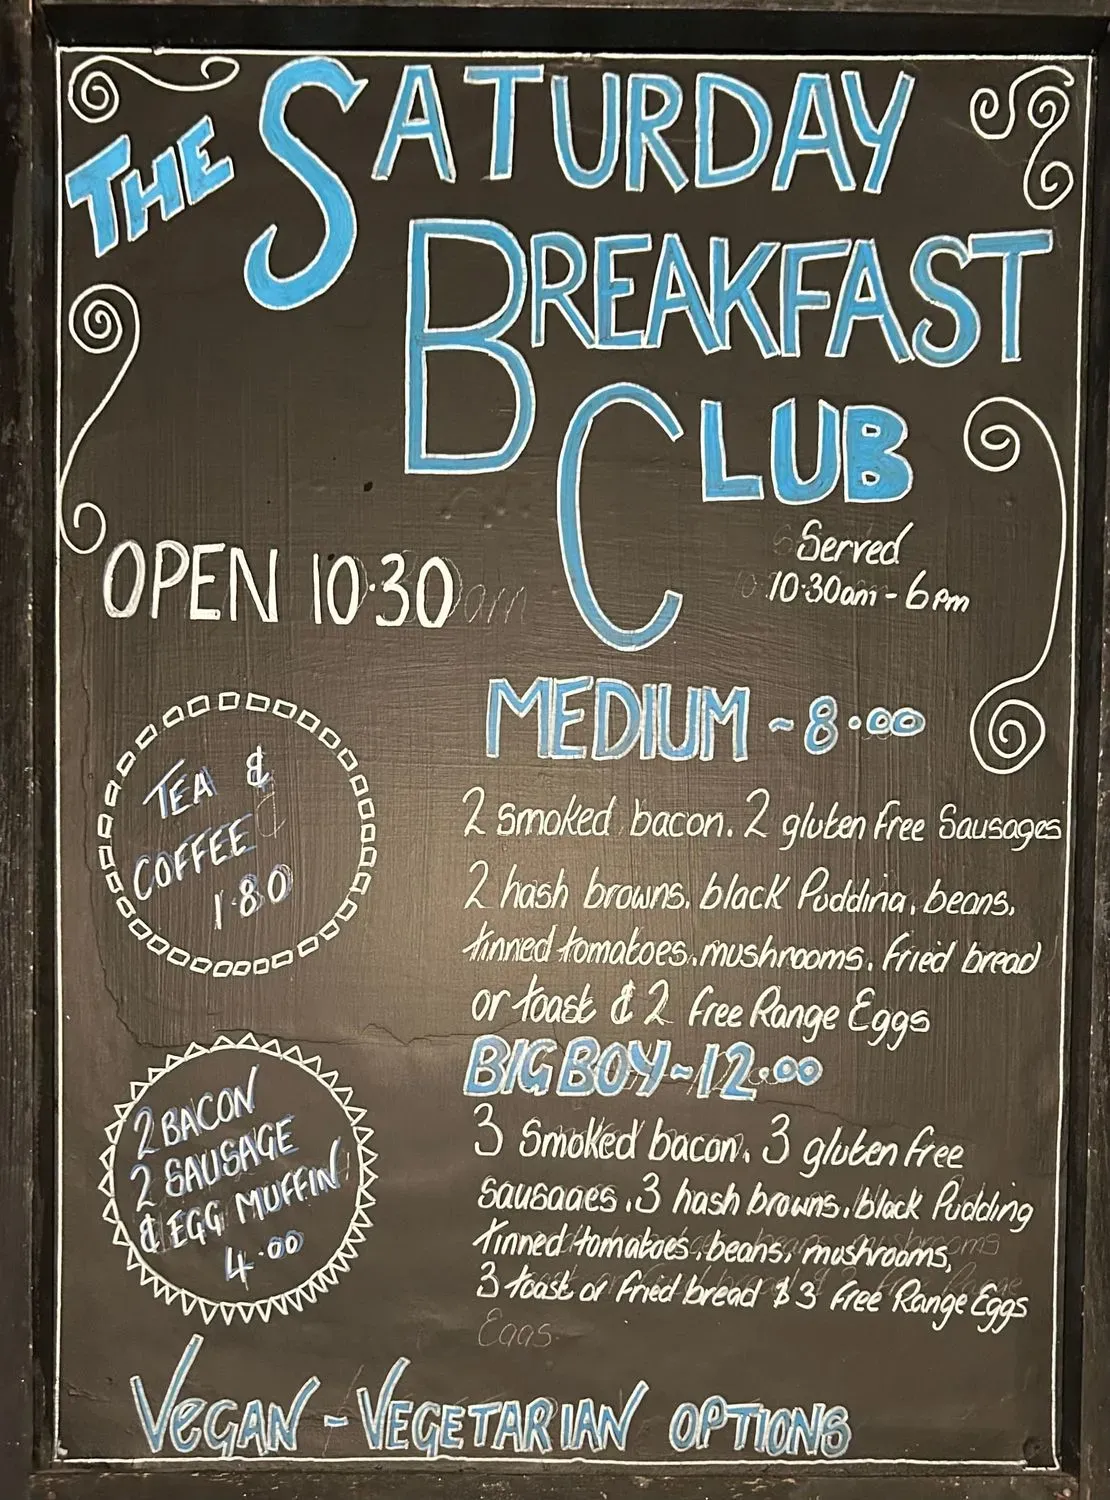 THE SATURDAY
BREAKFAST
CLUB
Served
10·30am - 6pm
OPEN 10·30
MEDIUM ~ 8·00
2 smoked bacon. 2 gluten free Sausages
2 hash browns. black Pudding, beans,
tinned tomatoes, mushrooms, fried bread
or toast & 2 free Range Eggs
BIG BOY ~ 12·00
3 Smoked bacon, 3 gluten free
sausages, 3 hash browns, black Pudding
tinned tomatoes, beans, mushrooms,
3 toast or fried bread & 3 free Range Eggs
TEA &
COFFEE
1·80
2 BACON
2 SAUSAGE
& EGG MUFFIN
4·00
VEGAN - VEGETARIAN OPTIONS